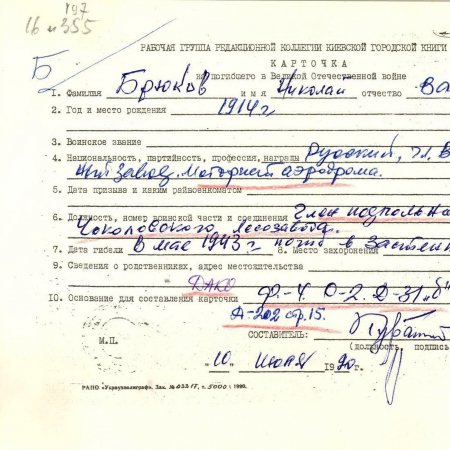 197
16 и 355
РАБОЧАЯ ГРУППА РЕДАКЦИОННОЙ КОЛЛЕГИИ КИЕВСКОЙ ГОРОДСКОЙ КНИГИ
КАРТОЧКА
Б
на погибшего в Великой Отечественной войне
1. Фамилия Брюков имя Николай отчество Ва
2. Год и место рождения 1914 г
3. Воинское звание
4. Национальность, партийность, профессия, награды Русский, чл. В
Моторист аэродрома.
5. Дата призыва и каким райвоенкоматом
6. Должность, номер воинской части и соединения Член подпольно
Чоколовского Лесозавода.
7. Дата гибели В мае 1943 г 8. Место захоронения погиб в застен
9. Сведения о родственниках, адрес местожительства
ДАКО
10. Основание для составления карточки Ф.-4 О-2 Д-31 "б"
Д-202 стр. 15.
СОСТАВИТЕЛЬ:
(должность, подпись
М.П.
"10" Июня 1990 г.
РАПО «Укрвузполиграф». Зак. № 0221Т, т. 5000 1990.